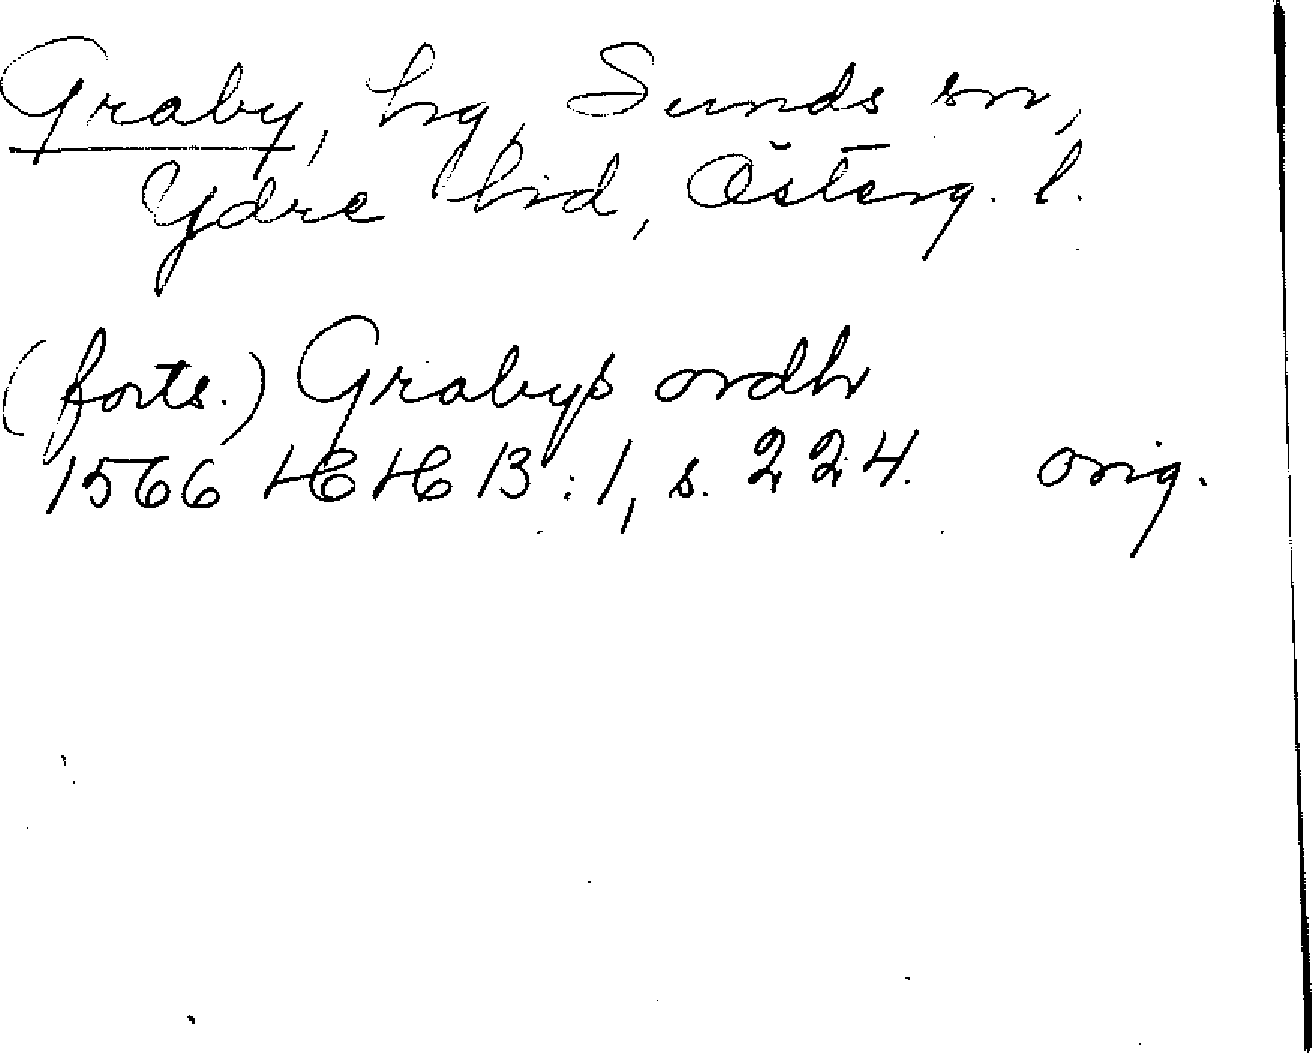 Graby, hg, Sunds sn,
Ydre hd, Österg. l.
(forts.) Grabyß ordh
1566 HH B:1, s. 224. orig.